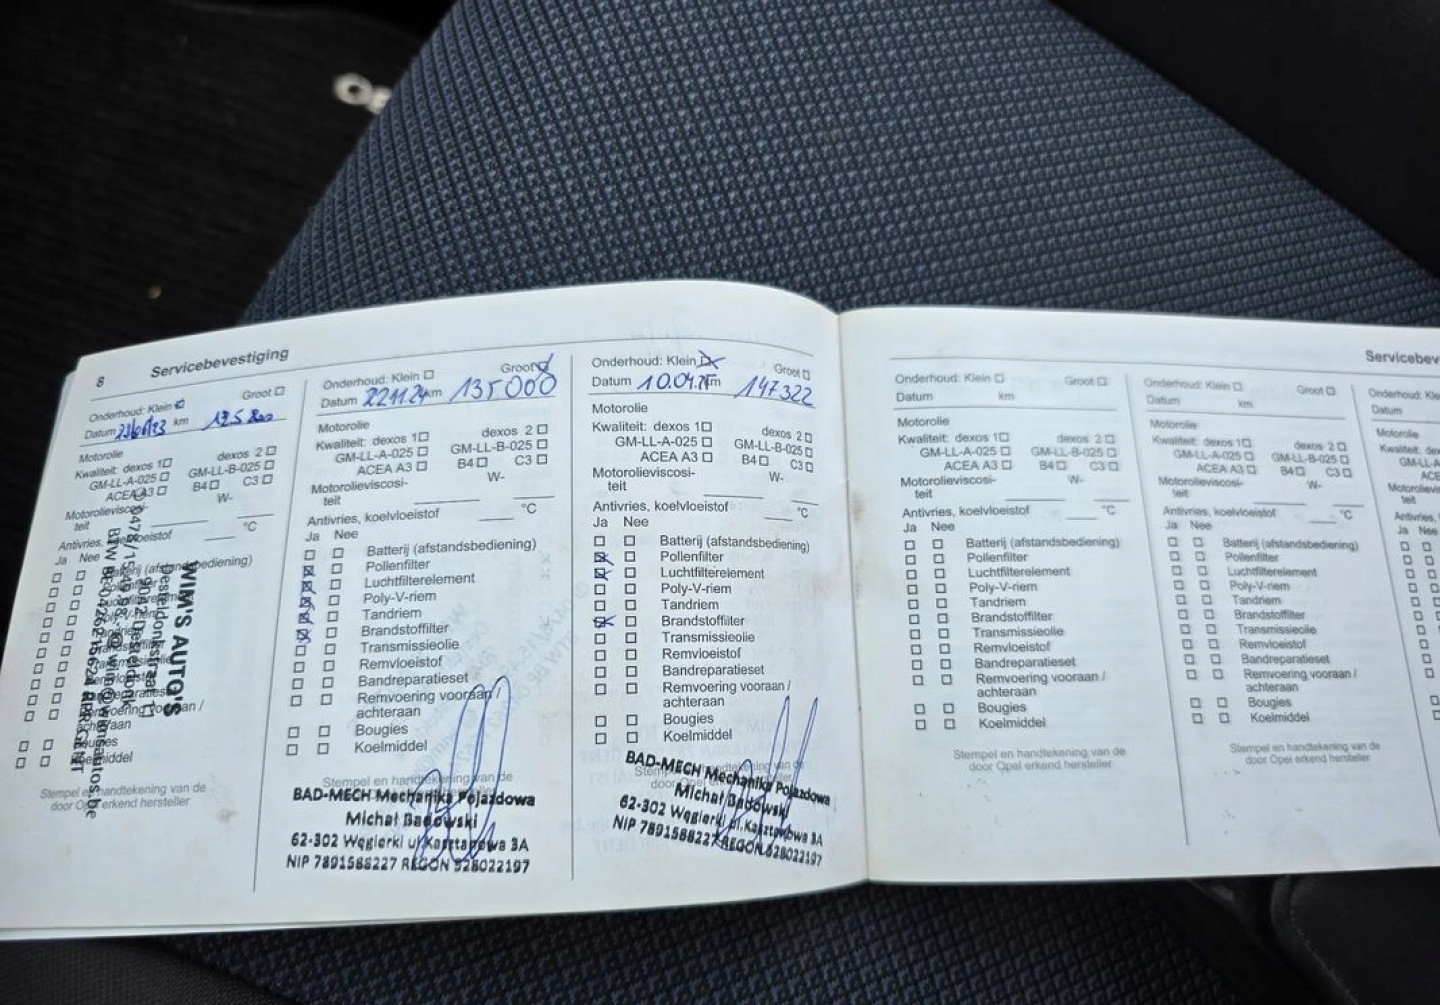 8 Servicebevestiging
Onderhoud: Klein Groot
Datum 23/06/23 km
Motorolie
Kwaliteit: dexos 1 dexos 2
GM-LL-A-025 GM-LL-B-025
ACEA A3 B4 C3
Motorolieviscosi-
teit W-
Antivries, koelvloeistof °C
Ja Nee
Batterij (afstandsbediening)
WIM'S AUTO'S
Desteldonkstraat
9042 Desteldonk
Stempel en handtekening van de
door Opel erkend hersteller
Onderhoud: Klein Groot
Datum 22.11.24 km 135000
Motorolie
Kwaliteit: dexos 1 dexos 2
GM-LL-A-025 GM-LL-B-025
ACEA A3 B4 C3
Motorolieviscosi-
teit W-
Antivries, koelvloeistof °C
Ja Nee
Batterij (afstandsbediening)
Pollenfilter
Luchtfilterelement
Poly-V-riem
Tandriem
Brandstoffilter
Transmissieolie
Remvloeistof
Bandreparatieset
Remvoering vooraan /
achteraan
Bougies
Koelmiddel
Stempel en handtekening van de
BAD-MECH Mechanika Pojazdowa
Michał Badowski
62-302 Węgierki ul.Kasztanowa 3A
NIP 7891588227 REGON 528022197
Onderhoud: Klein Groot
Datum 10.04.25 km 147322
Motorolie
Kwaliteit: dexos 1 dexos 2
GM-LL-A-025 GM-LL-B-025
ACEA A3 B4 C3
Motorolieviscosi-
teit W-
Antivries, koelvloeistof °C
Ja Nee
Batterij (afstandsbediening)
Pollenfilter
Luchtfilterelement
Poly-V-riem
Tandriem
Brandstoffilter
Transmissieolie
Remvloeistof
Bandreparatieset
Remvoering vooraan /
achteraan
Bougies
Koelmiddel
Stempel en handtekening van de
door Opel erkend hersteller
BAD-MECH Mechanika Pojazdowa
Michał Badowski
62-302 Węgierki ul.Kasztanowa 3A
NIP 7891588227 REGON 528022197
Servicebev
Onderhoud: Klein Groot
Datum km
Motorolie
Kwaliteit: dexos 1 dexos 2
GM-LL-A-025 GM-LL-B-025
ACEA A3 B4 C3
Motorolieviscosi-
teit W-
Antivries, koelvloeistof °C
Ja Nee
Batterij (afstandsbediening)
Pollenfilter
Luchtfilterelement
Poly-V-riem
Tandriem
Brandstoffilter
Transmissieolie
Remvloeistof
Bandreparatieset
Remvoering vooraan /
achteraan
Bougies
Koelmiddel
Stempel en handtekening van de
door Opel erkend hersteller
Onderhoud: Klein Groot
Datum km
Motorolie
Kwaliteit: dexos 1 dexos 2
GM-LL-A-025 GM-LL-B-025
ACEA A3 B4 C3
Motorolieviscosi-
teit W-
Antivries, koelvloeistof °C
Ja Nee
Batterij (afstandsbediening)
Pollenfilter
Luchtfilterelement
Poly-V-riem
Tandriem
Brandstoffilter
Transmissieolie
Remvloeistof
Bandreparatieset
Remvoering vooraan /
achteraan
Bougies
Koelmiddel
Stempel en handtekening van de
door Opel erkend hersteller
Onderhoud: Kle
Datum
Motorolie
Kwaliteit: d
GM-LL-A
ACE
Motorolievis
teit
Antivries,
Ja Nee